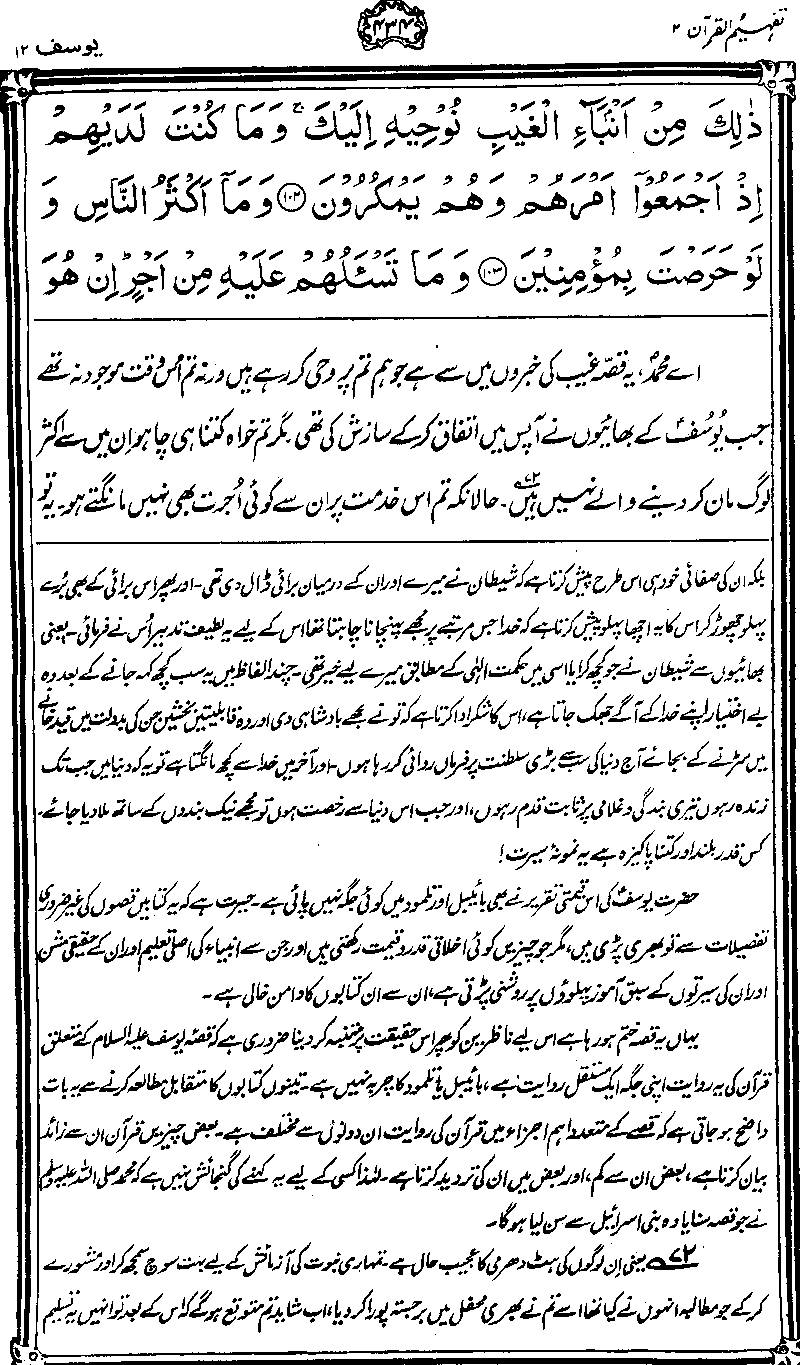 تفہیم القرآن ۲
۴۳۴
یوسف ۱۲
ذٰلِكَ مِنْ اَنْۢبَآءِ الْغَیْبِ نُوْحِیْهِ اِلَیْكَ ۚ وَ مَا كُنْتَ لَدَیْهِمْ
اِذْ اَجْمَعُوْۤا اَمْرَهُمْ وَ هُمْ یَمْكُرُوْنَ ﴿۱۰۲﴾ وَ مَاۤ اَكْثَرُ النَّاسِ وَ
لَوْ حَرَصْتَ بِمُؤْمِنِیْنَ ﴿۱۰۳﴾ وَ مَا تَسْـَٔلُهُمْ عَلَیْهِ مِنْ اَجْرٍ ؕ اِنْ هُوَ
اے محمدؐ، یہ قصہ غیب کی خبروں میں سے ہے جو ہم تم پر وحی کر رہے ہیں ورنہ تم اُس وقت موجود نہ تھے
جب یُوسُفؑ کے بھائیوں نے آپس میں اتفاق کر کے سازش کی تھی۔ مگر تم خواہ کتنا ہی چاہو اِن میں سے اکثر
لوگ مان کر دینے والے نہیں ہیں۷۲۔ حالانکہ تم اس خدمت پر ان سے کوئی اُجرت بھی نہیں مانگتے ہو۔ یہ تو
بلکہ ان کی صفائی خود ہی اس طرح پیش کرتا ہے کہ شیطان نے میرے اور ان کے درمیان برائی ڈال دی تھی۔ اور پھر اس برائی کے بھی بُرے
پہلو چھوڑ کر اس کا یہ اچھا پہلو پیش کرتا ہے کہ خدا جس مرتبے پر مجھے پہنچانا چاہتا تھا اس کے لیے یہ لطیف تدبیر اُس نے فرمائی۔ یعنی
بھائیوں سے شیطان نے جو کچھ کرایا اسی میں حکمت الٰہی کے مطابق میرے لیے خیر تھی۔ چند الفاظ میں یہ سب کچھ کہہ جانے کے بعد وہ
بے اختیار اپنے خدا کے آگے جھک جاتا ہے، اس کا شکر ادا کرتا ہے کہ تو نے مجھے بادشاہی دی اور وہ قابلیتیں بخشیں جن کی بدولت میں قید خانے
میں سڑنے کے بجائے آج دنیا کی سب سے بڑی سلطنت پر فرماں روائی کر رہا ہوں۔ اور آخر میں خدا سے کچھ مانگتا ہے تو یہ کہ دنیا میں جب تک
زندہ رہوں تیری بندگی و غلامی پر ثابت قدم رہوں، اور جب اس دنیا سے رخصت ہوں تو مجھے نیک بندوں کے ساتھ ملا دیا جائے۔
کس قدر بلند اور کتنا پاکیزہ ہے یہ نمونۂ سیرت!
حضرت یوسفؑ کی اس قیمتی تقریر نے بھی بائیبل اور تلمود میں کوئی جگہ نہیں پائی ہے۔ حیرت ہے کہ یہ کتابیں قصوں کی غیر ضروری
تفصیلات سے تو بھری پڑی ہیں، مگر جو چیزیں کوئی اخلاقی قدر و قیمت رکھتی ہیں اور جن سے انبیاء کی اصلی تعلیم اور ان کے حقیقی مشن
اور ان کی سیرتوں کے سبق آموز پہلوؤں پر روشنی پڑتی ہے، ان سے ان کتابوں کا دامن خالی ہے۔
یہاں یہ قصہ ختم ہو رہا ہے اس لیے ناظرین کو پھر اس حقیقت پر متنبہ کر دینا ضروری ہے کہ قصۂ یوسف علیہ السلام کے متعلق
قرآن کی یہ روایت اپنی جگہ ایک مستقل روایت ہے، بائیبل یا تلمود کا چربہ نہیں ہے۔ تینوں کتابوں کا متقابل مطالعہ کرنے سے یہ بات
واضح ہو جاتی ہے کہ قصے کے متعدد اہم اجزاء میں قرآن کی روایت ان دونوں سے مختلف ہے۔ بعض چیزیں قرآن ان سے زائد
بیان کرتا ہے، بعض ان سے کم، اور بعض میں ان کی تردید کرتا ہے۔ لہٰذا کسی کے لیے یہ کہنے کی گنجائش نہیں ہے کہ محمد صلی اللہ علیہ وسلم
نے جو قصہ سنایا وہ بنی اسرائیل سے سن لیا ہو گا۔
۷۲ یعنی اِن لوگوں کی ہٹ دھرمی کا عجیب حال ہے۔ تمہاری نبوت کی آزمائش کے لیے بہت سوچ سمجھ کر اور مشورے
کر کے جو مطالبہ انہوں نے کیا تھا اسے تم نے بھری محفل میں برجستہ پورا کر دیا، اب شاید تم متوقع ہو گے کہ اس کے بعد تو انہیں یہ تسلیم